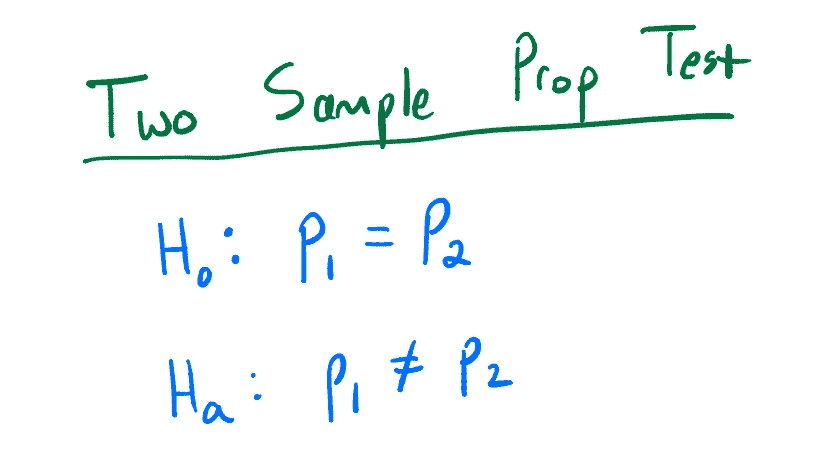 Two Sample Prop Test
H₀: P₁ = P₂
Hₐ: P₁ ≠ P₂